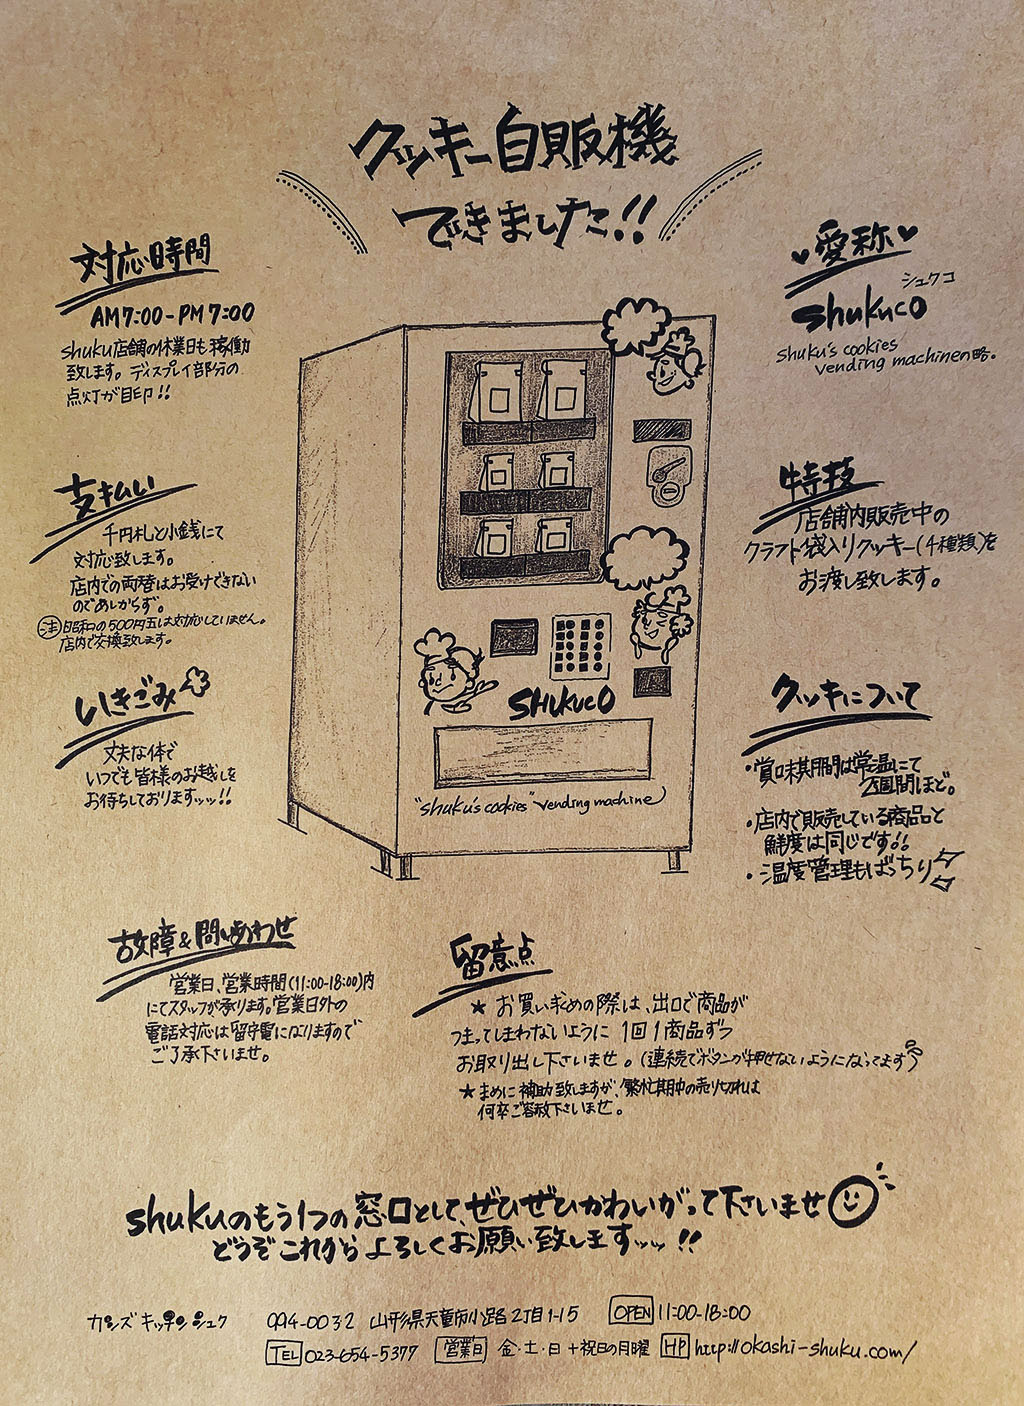 クッキー自販機
できました!!
対応時間
AM7:00-PM7:00
shuku店舗の休業日も稼働
致します。ディスプレイ部分の
点灯が目印!!
支払い
千円札と小銭にて
対応致します。
店内での両替はお受けできない
のであしからず。
注 昭和の500円玉は対応していません。
店内で交換致します。
いきごみ
丈夫な体で
いつでも皆様のお越しを
お待ちしておりますッッ!!
愛称
シュクコ
shukuco
shuku's cookies
vending machineの略。
特技
店舗内販売中の
クラフト袋入りクッキー(4種類)を
お渡し致します。
クッキーについて
・賞味期間は常温にて
2週間ほど。
・店内で販売している商品と
鮮度は同じです!!
・温度管理もばっちり
SHUKUCO
"shuku's cookies" vending machine
故障&問い合わせ
営業日、営業時間(11:00-18:00)内
にてスタッフが承ります。営業日外の
電話対応は留守電になりますので
ご了承下さいませ。
留意点
★ お買い求めの際は、出口で商品が
つまってしまわないように 1回1商品ずつ
お取り出し下さいませ。(連続でボタンが押せないようになってます)
★まめに補助致しますが、繁忙期中の売り切れは
何卒ご容赦下さいませ。
shukuのもう1つの窓口として、ぜひぜひかわいがって下さいませ
どうぞこれからよろしくお願い致しますッッ!!
カシズキッチン シュク 994-0032 山形県天童市小路2丁目1-15 OPEN 11:00-18:00
TEL 023-654-5377 営業日 金・土・日+祝日の月曜 HP http://okashi-shuku.com/